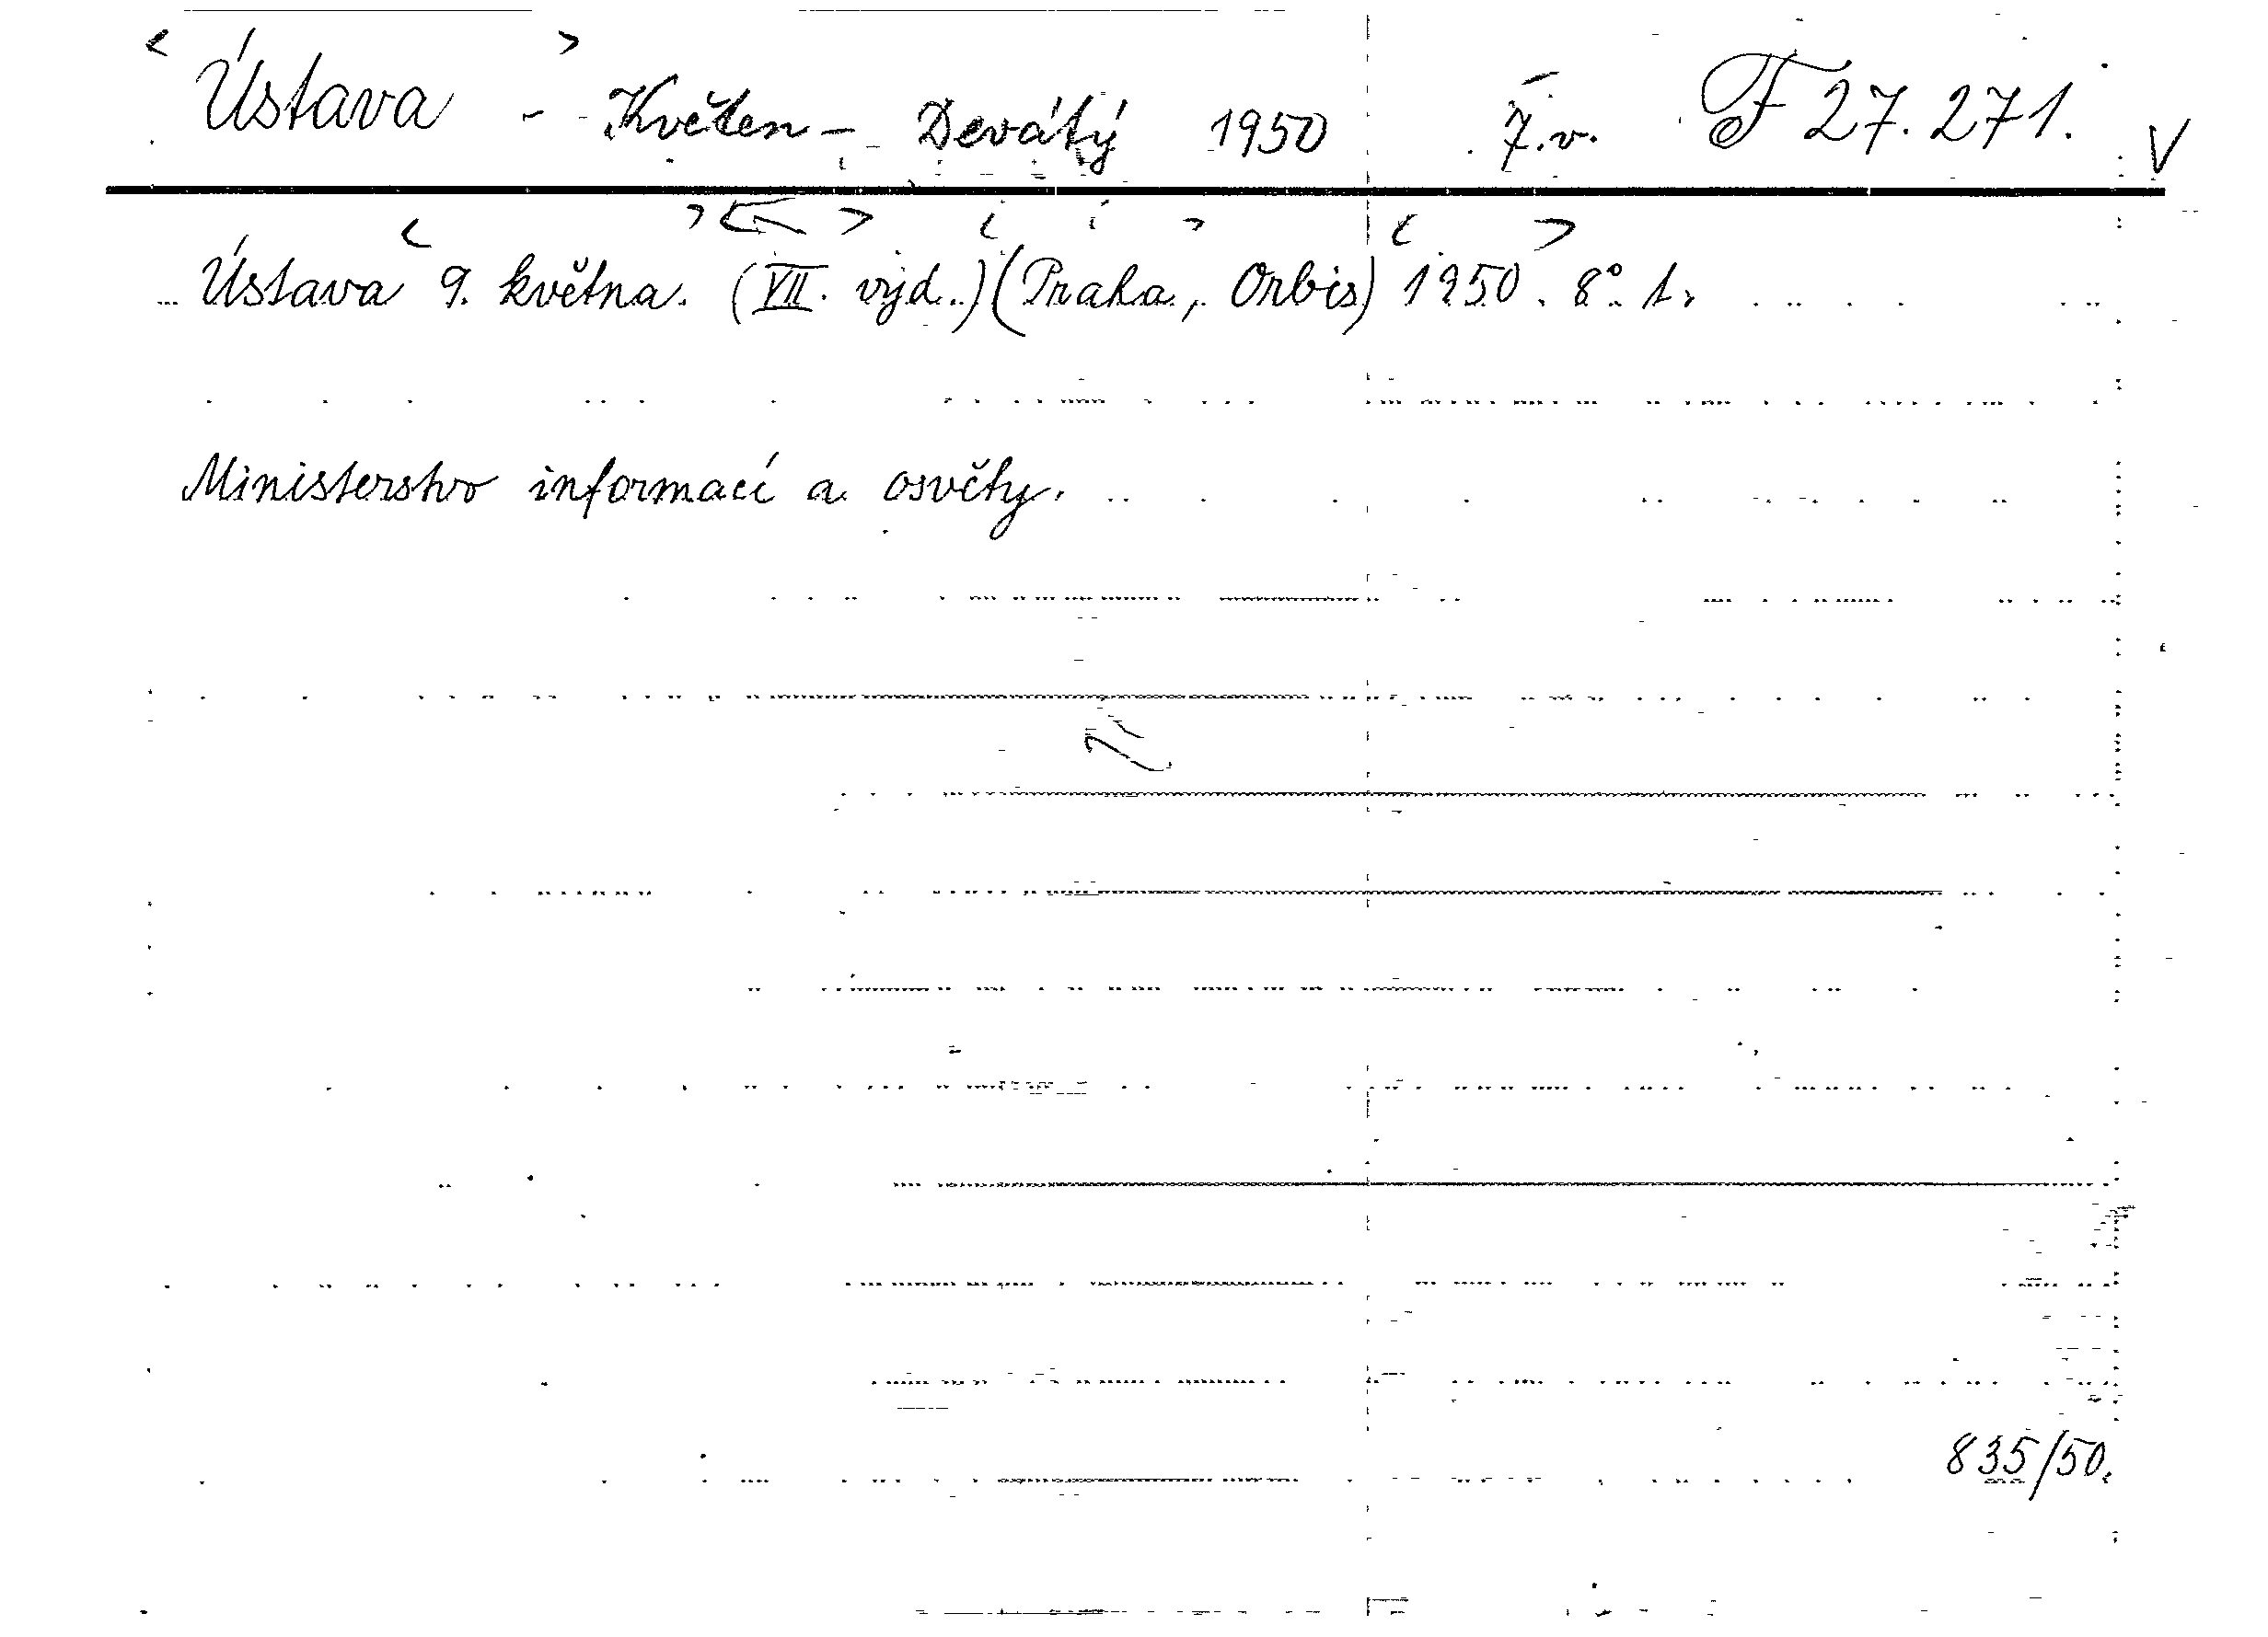 Ústava - Květen - Devátý 1950 7.v. F 27.271. V
Ústava 9. května. (VII. vyd.) (Praha, Orbis) 1950. 8°. 1.
Ministerstvo informací a osvěty.
835/50.